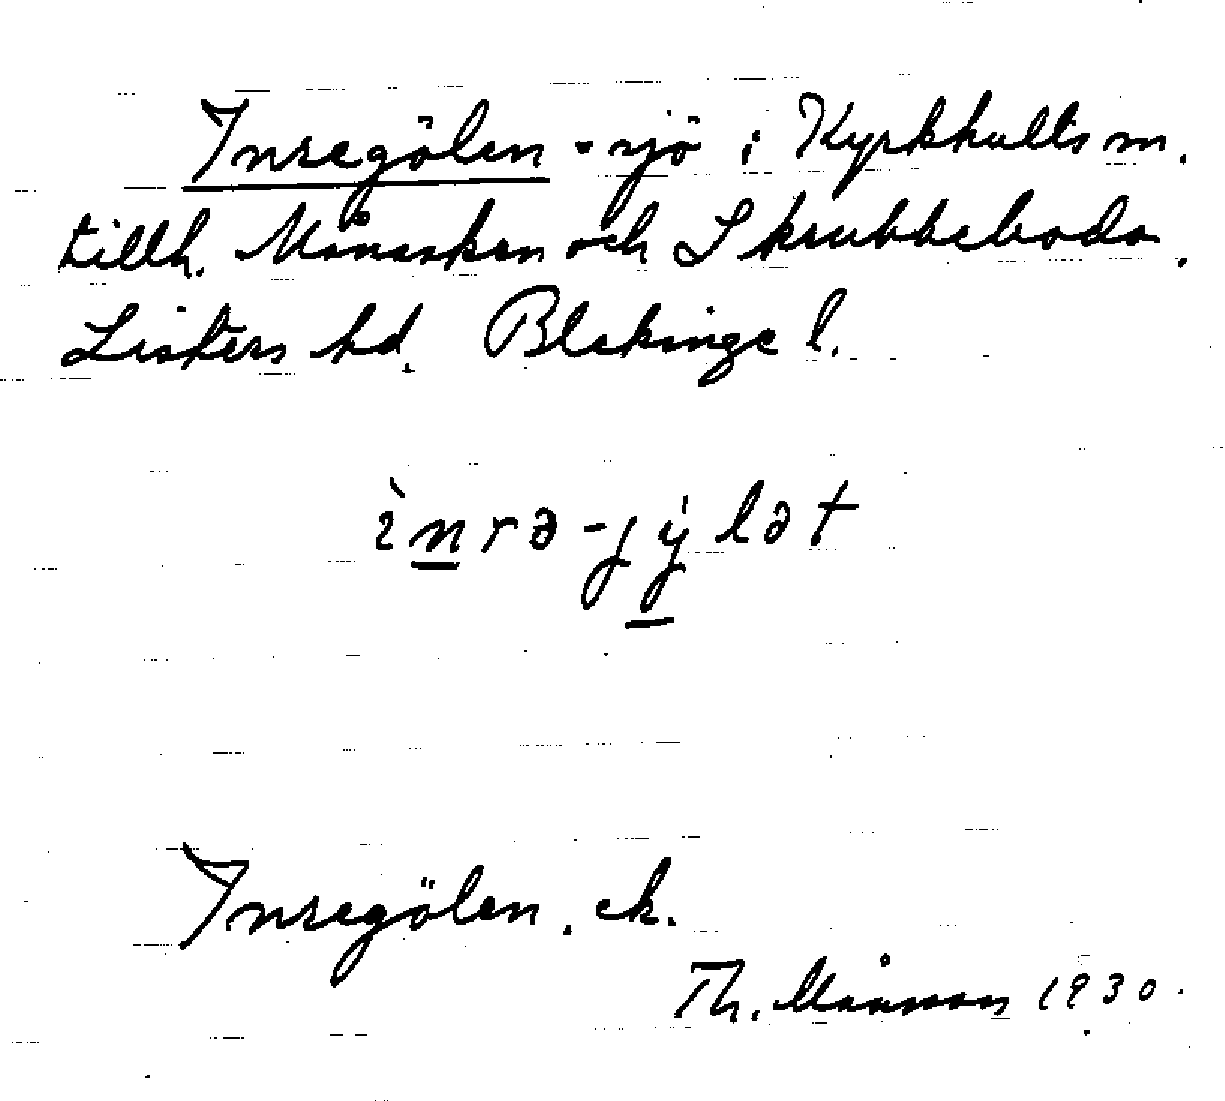 Inregölen - sjö i Kyrkhults sn.
tillh. Månasken och Skrubbeboda.
Listers hd. Blekinge l.
ìnrə-jẏlət
Inregölen. ek.
Th. Månsson 1930.